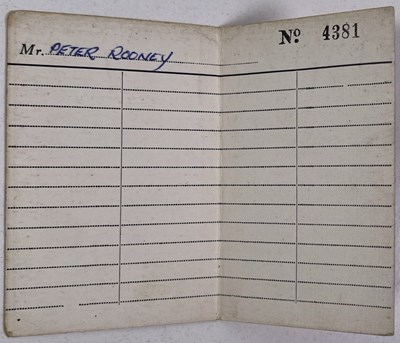 Mr. PETER ROONEY
Nº 4381